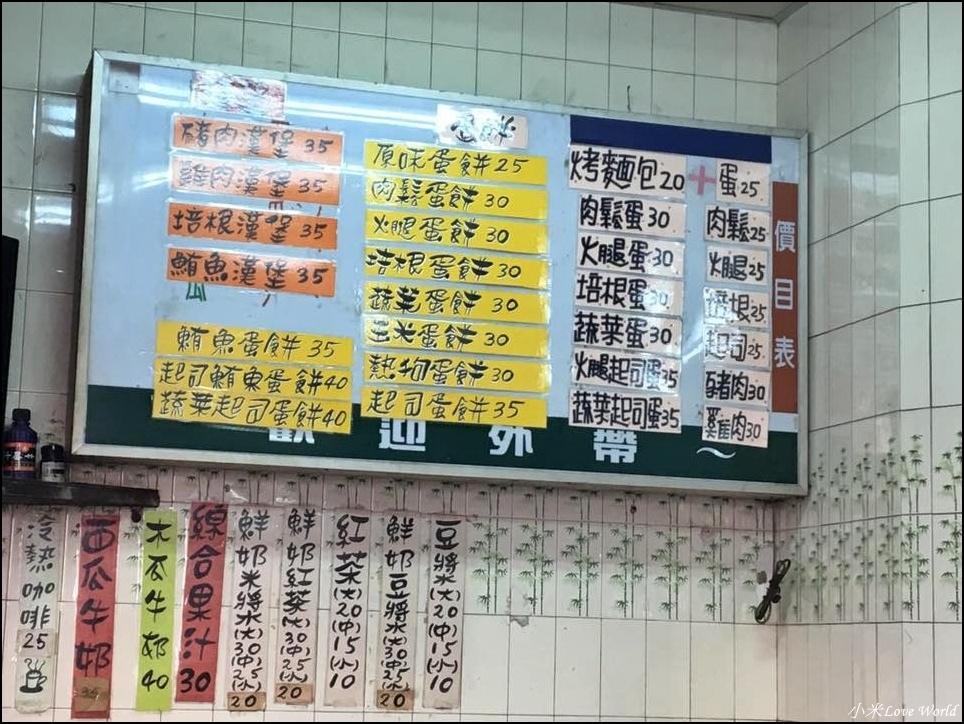 豬肉漢堡 35
雞肉漢堡 35
培根漢堡 35
鮪魚漢堡 35
鮪魚蛋餅 35
起司鮪魚蛋餅 40
蔬菜起司蛋餅 40
蛋餅
原味蛋餅 25
肉鬆蛋餅 30
火腿蛋餅 30
培根蛋餅 30
蔬菜蛋餅 30
玉米蛋餅 30
熱狗蛋餅 30
起司蛋餅 35
烤麵包 20 + 蛋 25
肉鬆蛋 30
火腿蛋 30
培根蛋 30
蔬菜蛋 30
火腿起司蛋 35
蔬菜起司蛋 35
肉鬆 25
火腿 25
培根 25
起司 25
豬肉 30
雞肉 30
價目表
歡迎外帶~
冷熱咖啡 25
西瓜牛奶 35
木瓜牛奶 40
綜合果汁 30
鮮奶米漿(大)30(中)25(小)20
鮮奶紅茶(大)30(中)25(小)20
紅茶(大)20(中)15(小)10
鮮奶豆漿(大)30(中)25(小)20
豆漿(大)20(中)15(小)10
小米Love World